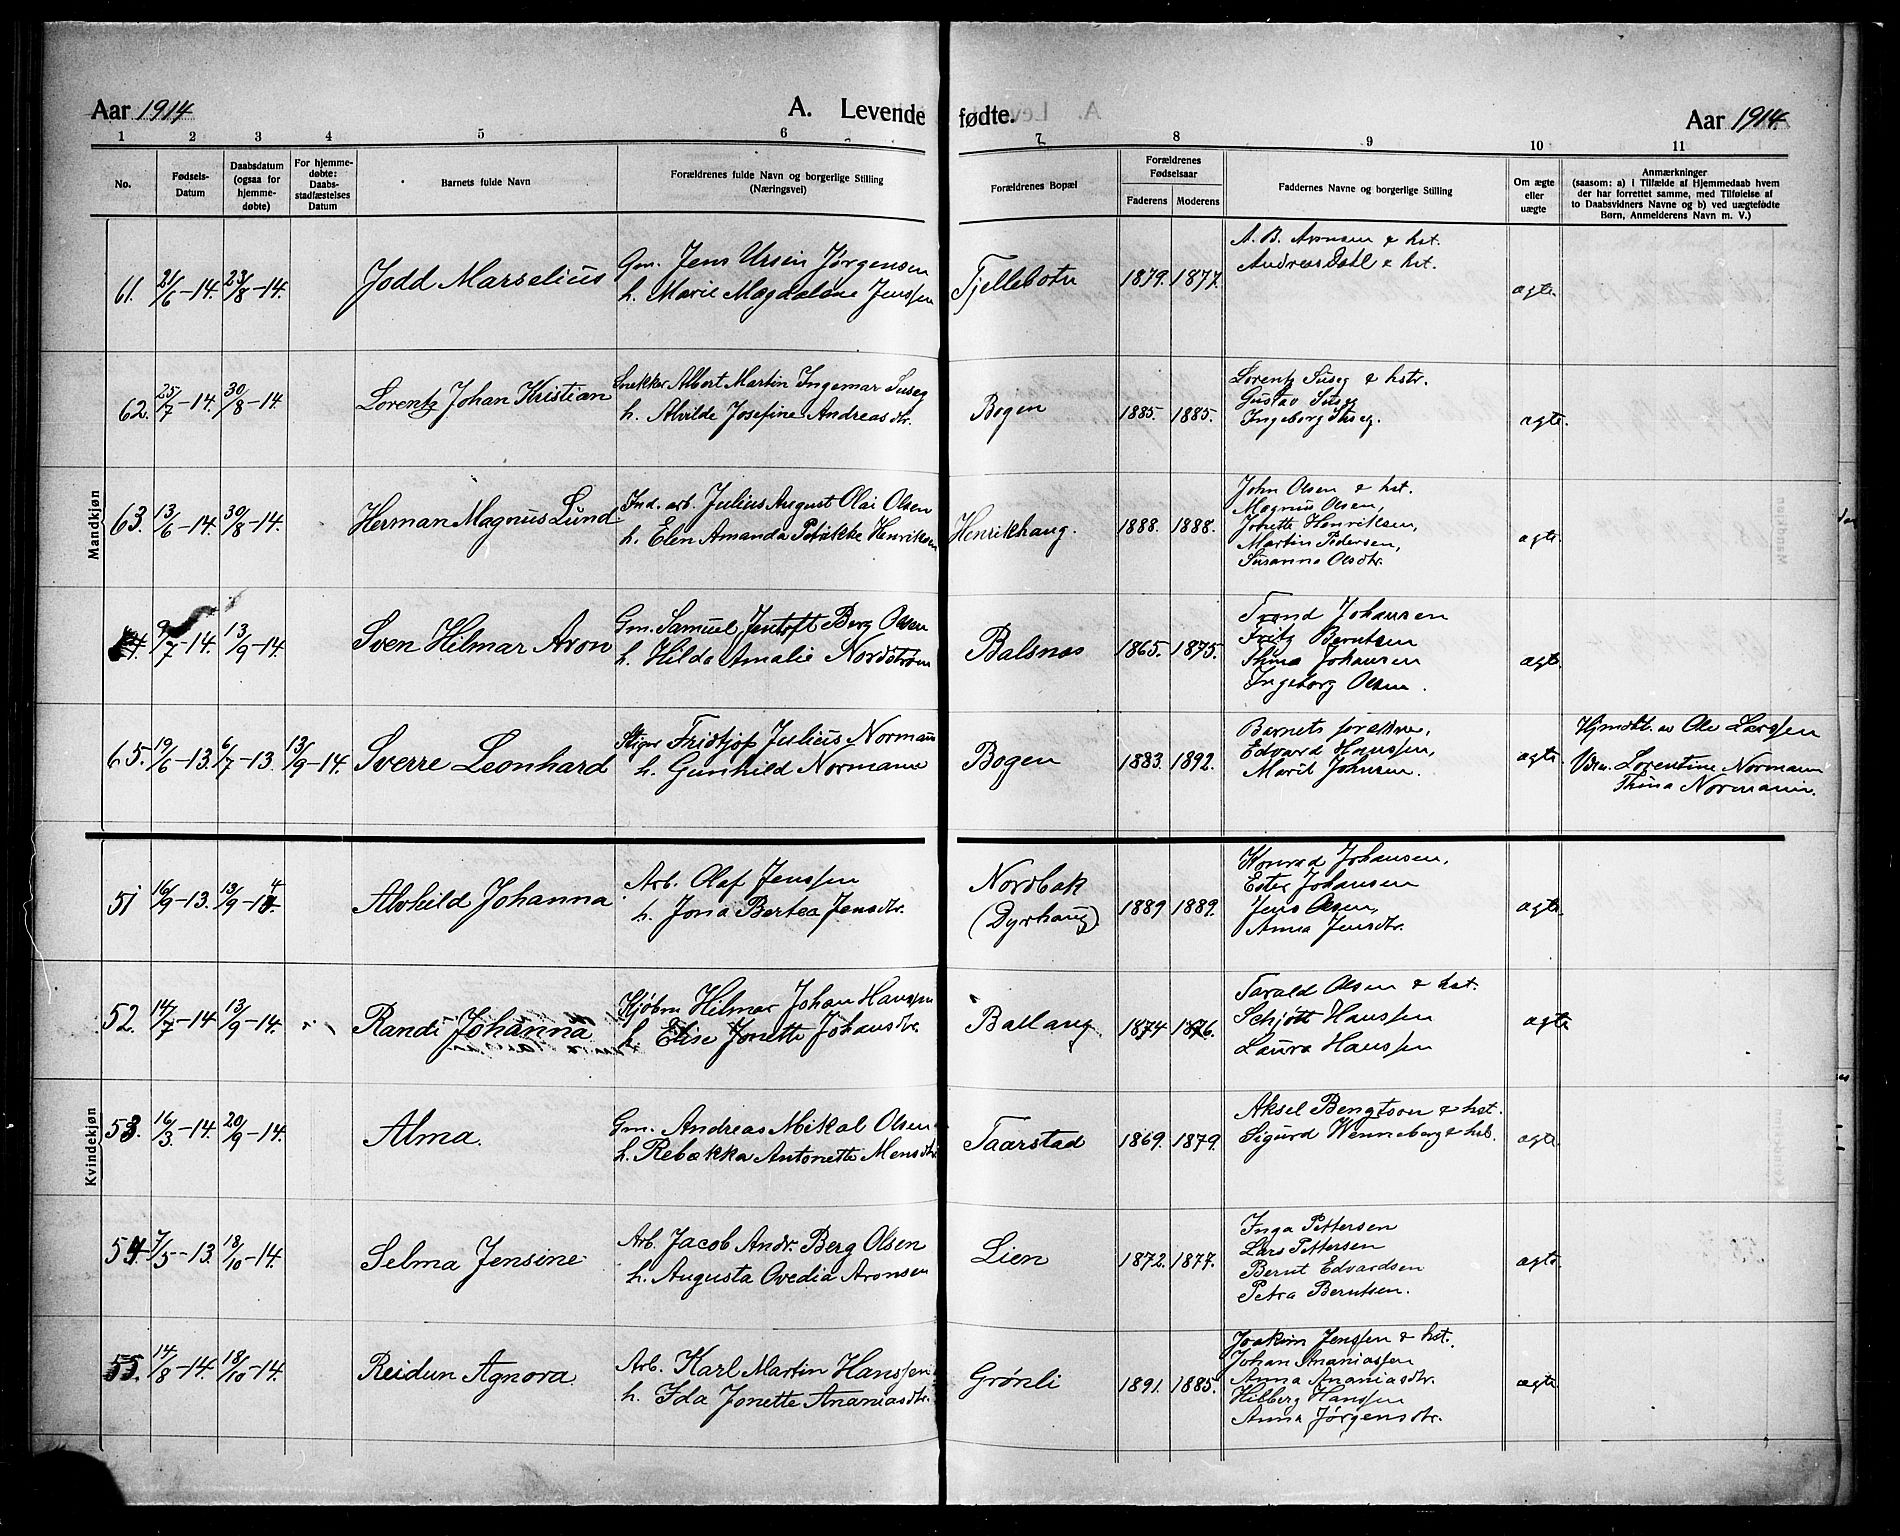 Aar 1914
A. Levende fødte.
Aar 1914.
1 2 3 4 5 6 7 8 9 10 11
No.
Fødsels-
Datum
Daabsdatum
(ogsaa for
hjemme-
døbte)
For hjemme-
døbte:
Daabs-
stadfæstelses
Datum
Barnets fulde Navn
Forældrenes fulde Navn og borgerlige Stilling
(Næringsvei)
Forældrenes Bopæl
Forældrenes
Fødselsaar
Faderens Moderens
Faddernes Navne og borgerlige Stilling
Om ægte
eller
uægte
Anmærkninger
(saasom: a) i Tilfælde af Hjemmedaab hvem
der har forrettet samme, med Tilføielse af
to Daabsvidners Navne og b) ved uægtefødte
Børn, Anmelderens Navn m. V.)
Mandkjøn
61. 21/6-14. 23/8-14. Jodd Marselius
Gm. Jens Ursin Jørgensen
h. Marie Magdalene Jenssen
Fjellebotn 1879. 1877.
A. B. Aronsen & hst.
Andreas Dahl & hst.
ægte
62. 25/7-14. 30/8-14. Lorentz Johan Kristian
Snekker Albert Martin Ingemar Suseg
h. Alvilde Josefine Andreasdtr.
Bogen 1885. 1885.
Lorentz Suseg & hstr.
Gustav Suseg
Ingeborg Suseg.
ægte.
63. 13/6-14. 30/8-14. Herman Magnus Lund
Ind. arb. Julius August Olai Olsen
h. Elen Amanda Petrikke Henriksen
Henrikhaug. 1888. 1888.
John Olsen & hst.
Magnus Olsen,
Jonette Henriksen,
Martin Pedersen,
Susanna Olsdtr.
ægte.
64. 9/7-14. 13/9-14. Sven Hilmar Aron
Gm. Samuel Jentoft Berg Olsen
h. Hilda Amalie Nordstrøm
Balsnes 1865. 1875.
Trond Johansen
Fritz Berntsen
Thina Johansen
Ingeborg Olsen.
ægte.
65. 19/6-13. 6/7-13. 13/9-14. Sverre Leonhard
Stiger Fridtjof Julius Normann
h. Gunhild Normann
Bogen 1883. 1892.
Barnets forældre,
Edvard Hanssen,
Marit Johnsen.
ægte.
Hjmdbt. av Ole Larssen
Vidn. Lorentine Normann
Thina Normann.
Kvindekjøn
51 16/9-13. 13/9-14. Alvhild Johanna
Arb. Olaf Jenssen
h. Jona Bertea Jensdtr.
Nordbak
(Dyrhaug) 1889 1889.
Konrad Johansen,
Ester Johansen
Jens Olsen,
Anna Jensdtr.
ægte.
52. 14/7-14 13/9-14. Randi Johanna
Kjøbm Hilmar Johan Hanssen
h. Elise Jonette Johansdtr.
Ballang 1874 1876.
Tarald Olsen & hst.
Schjøtt Hanssen
Laura Hanssen
ægte
53. 16/3-14. 20/9-14. Alma.
Gm. Andreas Mikal Olsen
h. Rebækka Antonette Mensdtr
Taarstad 1869. 1879.
Aksel Bengtson & hst.
Sigurd Wenneberg & hst.
ægte
54 7/5-13. 18/10-14. Selma Jensine
Arb. Jacob Andr. Berg Olsen
h. Augusta Ovedia Aronsen
Lien 1872. 1877.
Inga Pettersen
Lars Pettersen
Bernt Edvardsen
Petra Berntsen.
ægte
55. 14/8-14. 18/10-14. Reidun Agnora.
Arb. Karl Martin Hanssen
h. Ida Jonette Ananiasdtr.
Grønli 1891. 1885.
Joakim Jenssen & hst.
Johan Ananiassen
Anna Ananiasdtr.
Hilberg Hanssen
Anna Jørgensdtr.
ægte